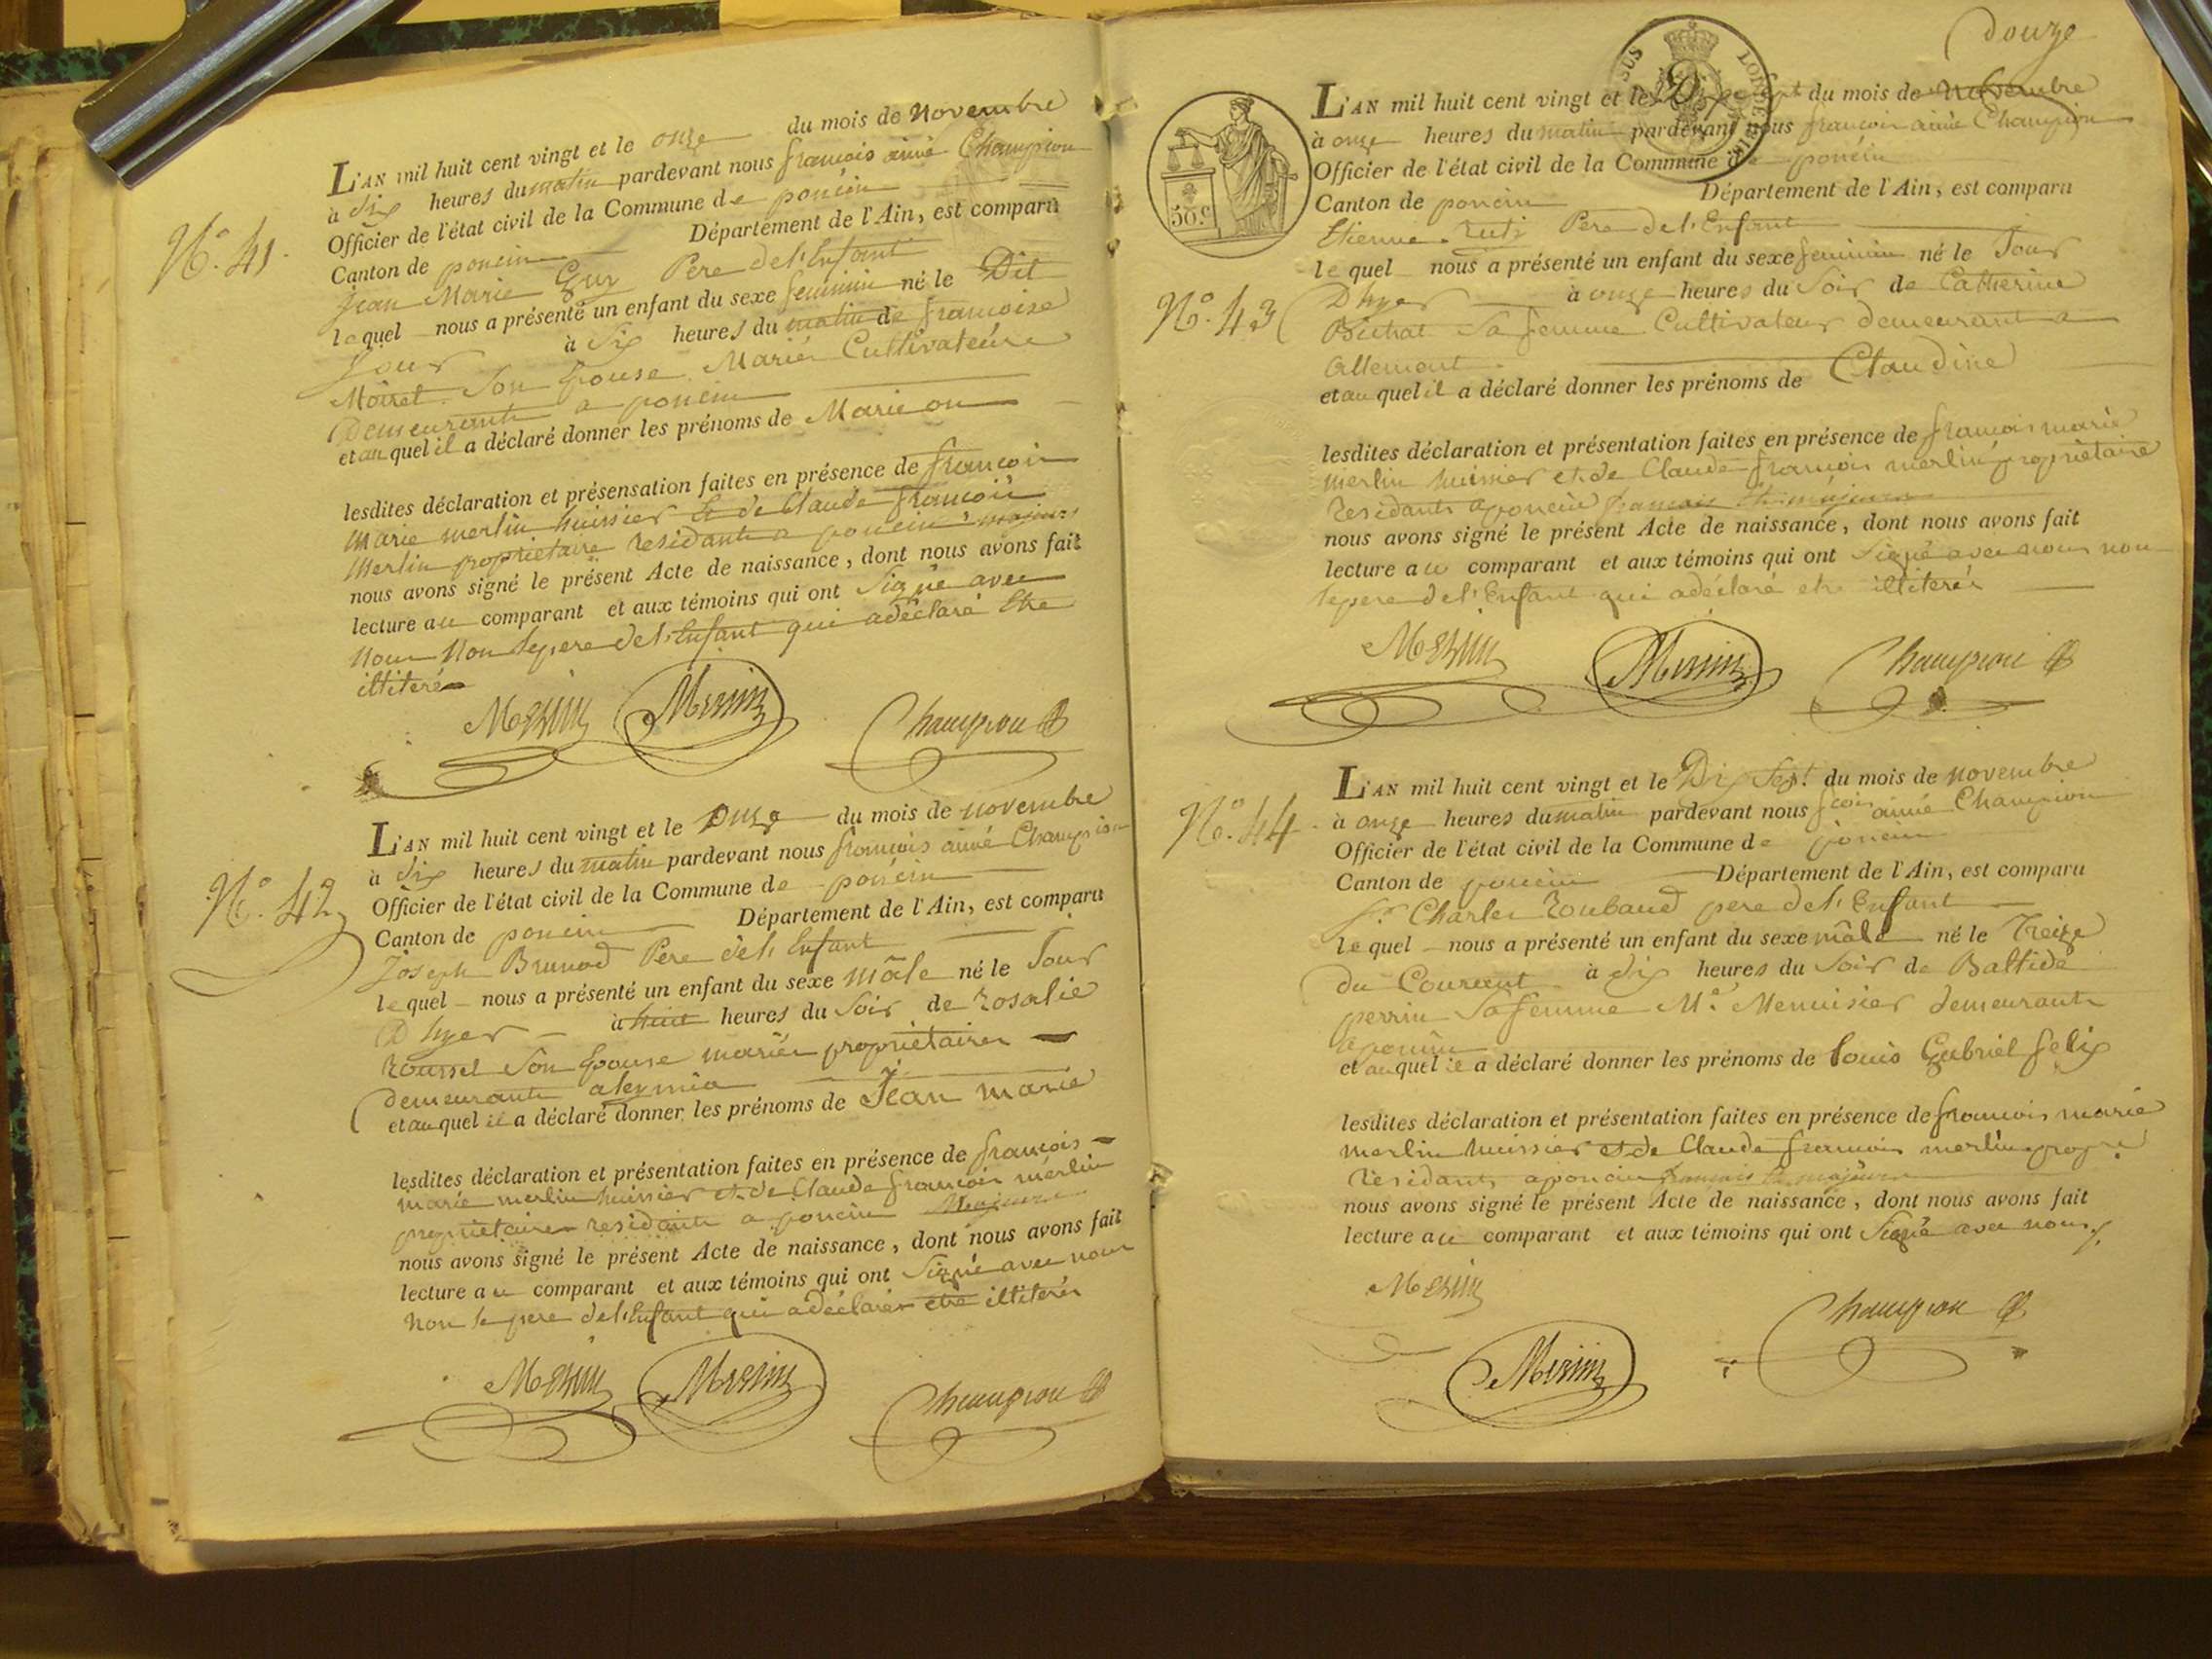 N.° 41.
L'AN mil huit cent vingt et le onze du mois de Novembre
à dix heures du matin pardevant nous francois aimé Champion
Officier de l'état civil de la Commune de poncin
Canton de poncin Département de l'Ain, est comparu
Jean Marie Guy Pere de l'Enfant
lequel nous a présenté un enfant du sexe feminin né le Dit
Jour à Six heures du matin de francoise
Moiret Son Epouse Mariés Cultivateurs
Demeurants a poncin
et auquel il a déclaré donner les prénoms de Marie on
lesdites déclaration et présensation faites en présence de francois
marie merlin huissier et de Claude francois
Merlin propriétaire residants a poncin majeurs
nous avons signé le présent Acte de naissance, dont nous avons fait
lecture au comparant et aux témoins qui ont Signé avec
nous Non le pere de l'Enfant qui a déclaré Etre
illiteré
Merlin Merlin Champion
N.° 42
L'AN mil huit cent vingt et le Onze du mois de novembre
à dix heures du matin pardevant nous francois aimé Champion
Officier de l'état civil de la Commune de poncin
Canton de poncin Département de l'Ain, est comparu
Joseph Brunod Pere de l'Enfant
lequel nous a présenté un enfant du sexe mâle né le Jour
D'hyer à huit heures du Soir de rosalie
roussel Son Epouse mariés propriétaires
demeurants a leymia
et auquel il a déclaré donner les prénoms de Jean marie
lesdites déclaration et présentation faites en présence de francois
marie merlin huissier et de Claude francois merlin
propriétaires residants a poncin Majeurs
nous avons signé le présent Acte de naissance, dont nous avons fait
lecture au comparant et aux témoins qui ont Signé avec nous
Non le pere de l'Enfant qui a déclarer etre illiterés
Merlin Merlin Champion
douze
50.c
N.° 43
L'AN mil huit cent vingt et le Dix sept du mois de Novembre
à onze heures du matin pardevant nous francois aimé Champion
Officier de l'état civil de la Commune de poncin
Canton de poncin Département de l'Ain, est comparu
Etienne Pere de l'Enfant
lequel nous a présenté un enfant du sexe feminin né le Jour
D'hyer à onze heures du Soir de Catherine
Bichat Sa femme Cultivateurs demeurant a
Allement
et auquel il a déclaré donner les prénoms de Claudine
lesdites déclaration et présentation faites en présence de francois marie
merlin huissier et de Claude francois merlin propriétaire
residants a poncin majeurs
nous avons signé le présent Acte de naissance, dont nous avons fait
lecture au comparant et aux témoins qui ont Signé avec nous non
le pere de l'Enfant qui a déclaré etre illiterés
Merlin Merlin Champion
N.° 44
L'AN mil huit cent vingt et le Dix Sept du mois de novembre
à onze heures du matin pardevant nous fcois aimé Champion
Officier de l'état civil de la Commune de poncin
Canton de poncin Département de l'Ain, est comparu
Sr Charles Roubaud pere de l'Enfant
lequel nous a présenté un enfant du sexe mâle né le Treize
du Courant à dix heures du Soir de Baltide
perrin Sa femme M.e Menuisier demeurants
a poncin
et auquel il a déclaré donner les prénoms de Louis Gabriel felix
lesdites déclaration et présentation faites en présence de francois marie
merlin huissier et de Claude francois merlin propre
residants a poncin majeurs
nous avons signé le présent Acte de naissance, dont nous avons fait
lecture au comparant et aux témoins qui ont Signé avec nous
Merlin Merlin Champion